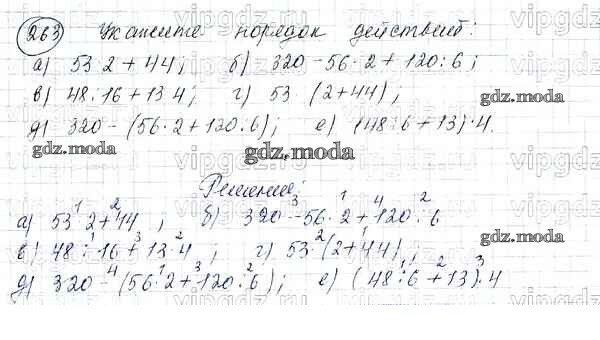 263 Укажите порядок действий:
а) 53·2+44; б) 320-56·2+120:6;
в) 48·16+13·4; г) 53·(2+44);
gdz.moda
gdz.moda
д) 320-(56·2+120:6); е) (48:6+13)·4.
gdz.moda
gdz.moda
Решение:
1 2 3 1 4 2
а) 53·2+44; б) 320-56·2+120:6
1 3 2 2 1
в) 48·16+13·4; г) 53·(2+44);
gdz.moda
4 1 3 2 1 2 3
д) 320-(56·2+120:6); е) (48:6+13)·4